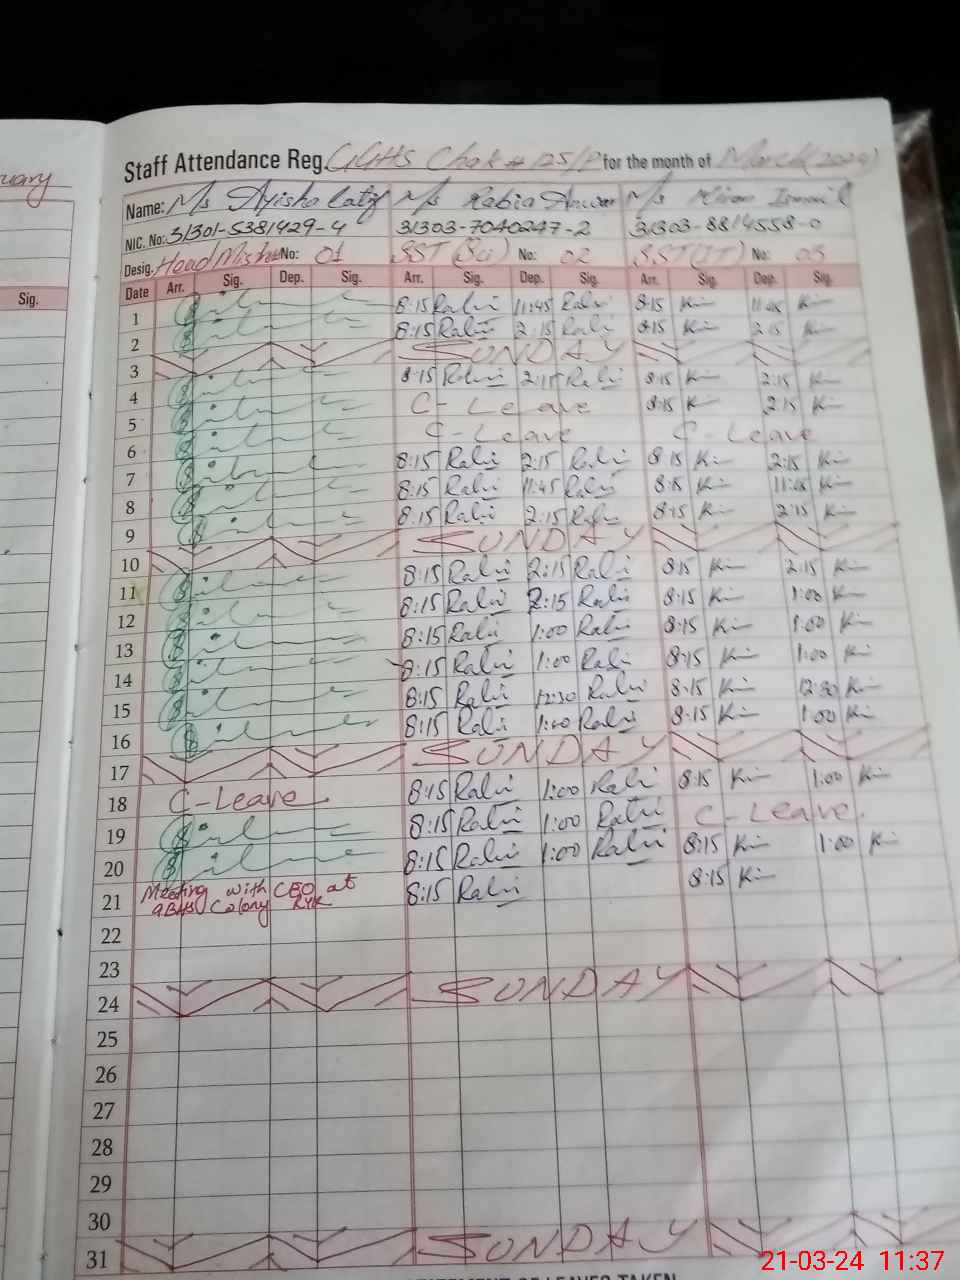 uary
Sig.
Staff Attendance Reg. GGHS Chak # 125/P for the month of March (2024)
Name: Ms Ayisha Latif Ms Rabia Anwar Ms Kiran Ismail
NIC. No: 31301-5381429-4 31303-7040247-2 31303-8814558-0
Desig. Head Mistress No: 01 SST (Sci) No: 02 SST (IT) No: 03
Date Arr. Sig. Dep. Sig. Arr. Sig. Dep. Sig. Arr. Sig. Dep. Sig.
1 8:15 Rabi 11:45 Rabi 8:15 Ki 11:45 Ki
2 8:15 Rabi 2:15 Rabi 8:15 Ki 2:15 Ki
3 SUNDAY
4 8:15 Rabi 2:15 Rabi 8:15 Ki 2:15 Ki
5 C-Leave 8:15 Ki 2:15 Ki
6 C-Leave C-Leave
7 8:15 Rabi 2:15 Rabi 8:15 Ki 2:15 Ki
8 8:15 Rabi 11:45 Rabi 8:15 Ki 11:45 Ki
9 8:15 Rabi 2:15 Rabi 8:15 Ki 2:15 Ki
10 SUNDAY
11 8:15 Rabi 2:15 Rabi 8:15 Ki 2:15 Ki
12 8:15 Rabi 2:15 Rabi 8:15 Ki 1:00 Ki
13 8:15 Rabi 1:00 Rabi 8:15 Ki 1:00 Ki
14 8:15 Rabi 1:00 Rabi 8:15 Ki 1:00 Ki
15 8:15 Rabi 12:30 Rabi 8:15 Ki 12:30 Ki
16 8:15 Rabi 1:00 Rabi 8:15 Ki 1:00 Ki
17 SUNDAY
18 C-Leave 8:15 Rabi 1:00 Rabi 8:15 Ki 1:00 Ki
19 8:15 Rabi 1:00 Rabi C-Leave
20 8:15 Rabi 1:00 Rabi 8:15 Ki 1:00 Ki
21 Meeting with CEO at Colony RYK 8:15 Rabi 8:15 Ki
22
23
24 SUNDAY
25
26
27
28
29
30
31 SUNDAY
STATEMENT OF LEAVES TAKEN
21-03-24 11:37